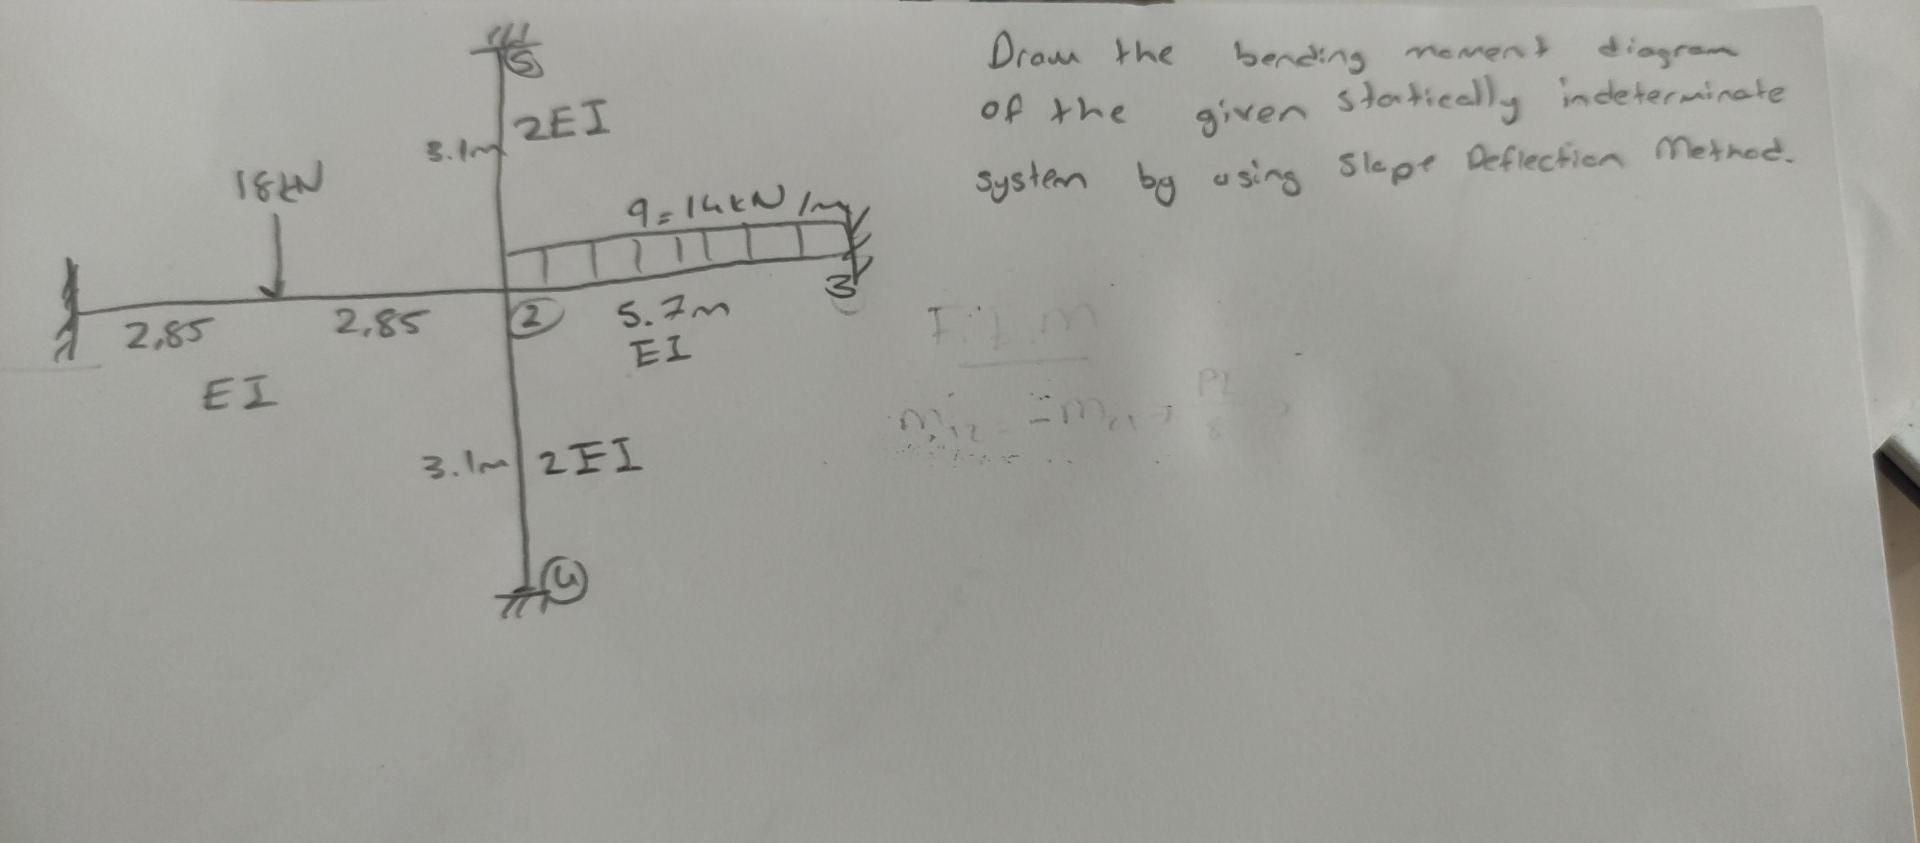 Draw the bending moment diagram
of the given statically indeterminate
system by using Slope Deflection Method.
5
2EI
3.1m
18kN
q=14kN/m
3
2,85
2,85
2
5.7m
EI
EI
3.1m
2EI
4
F.E.M